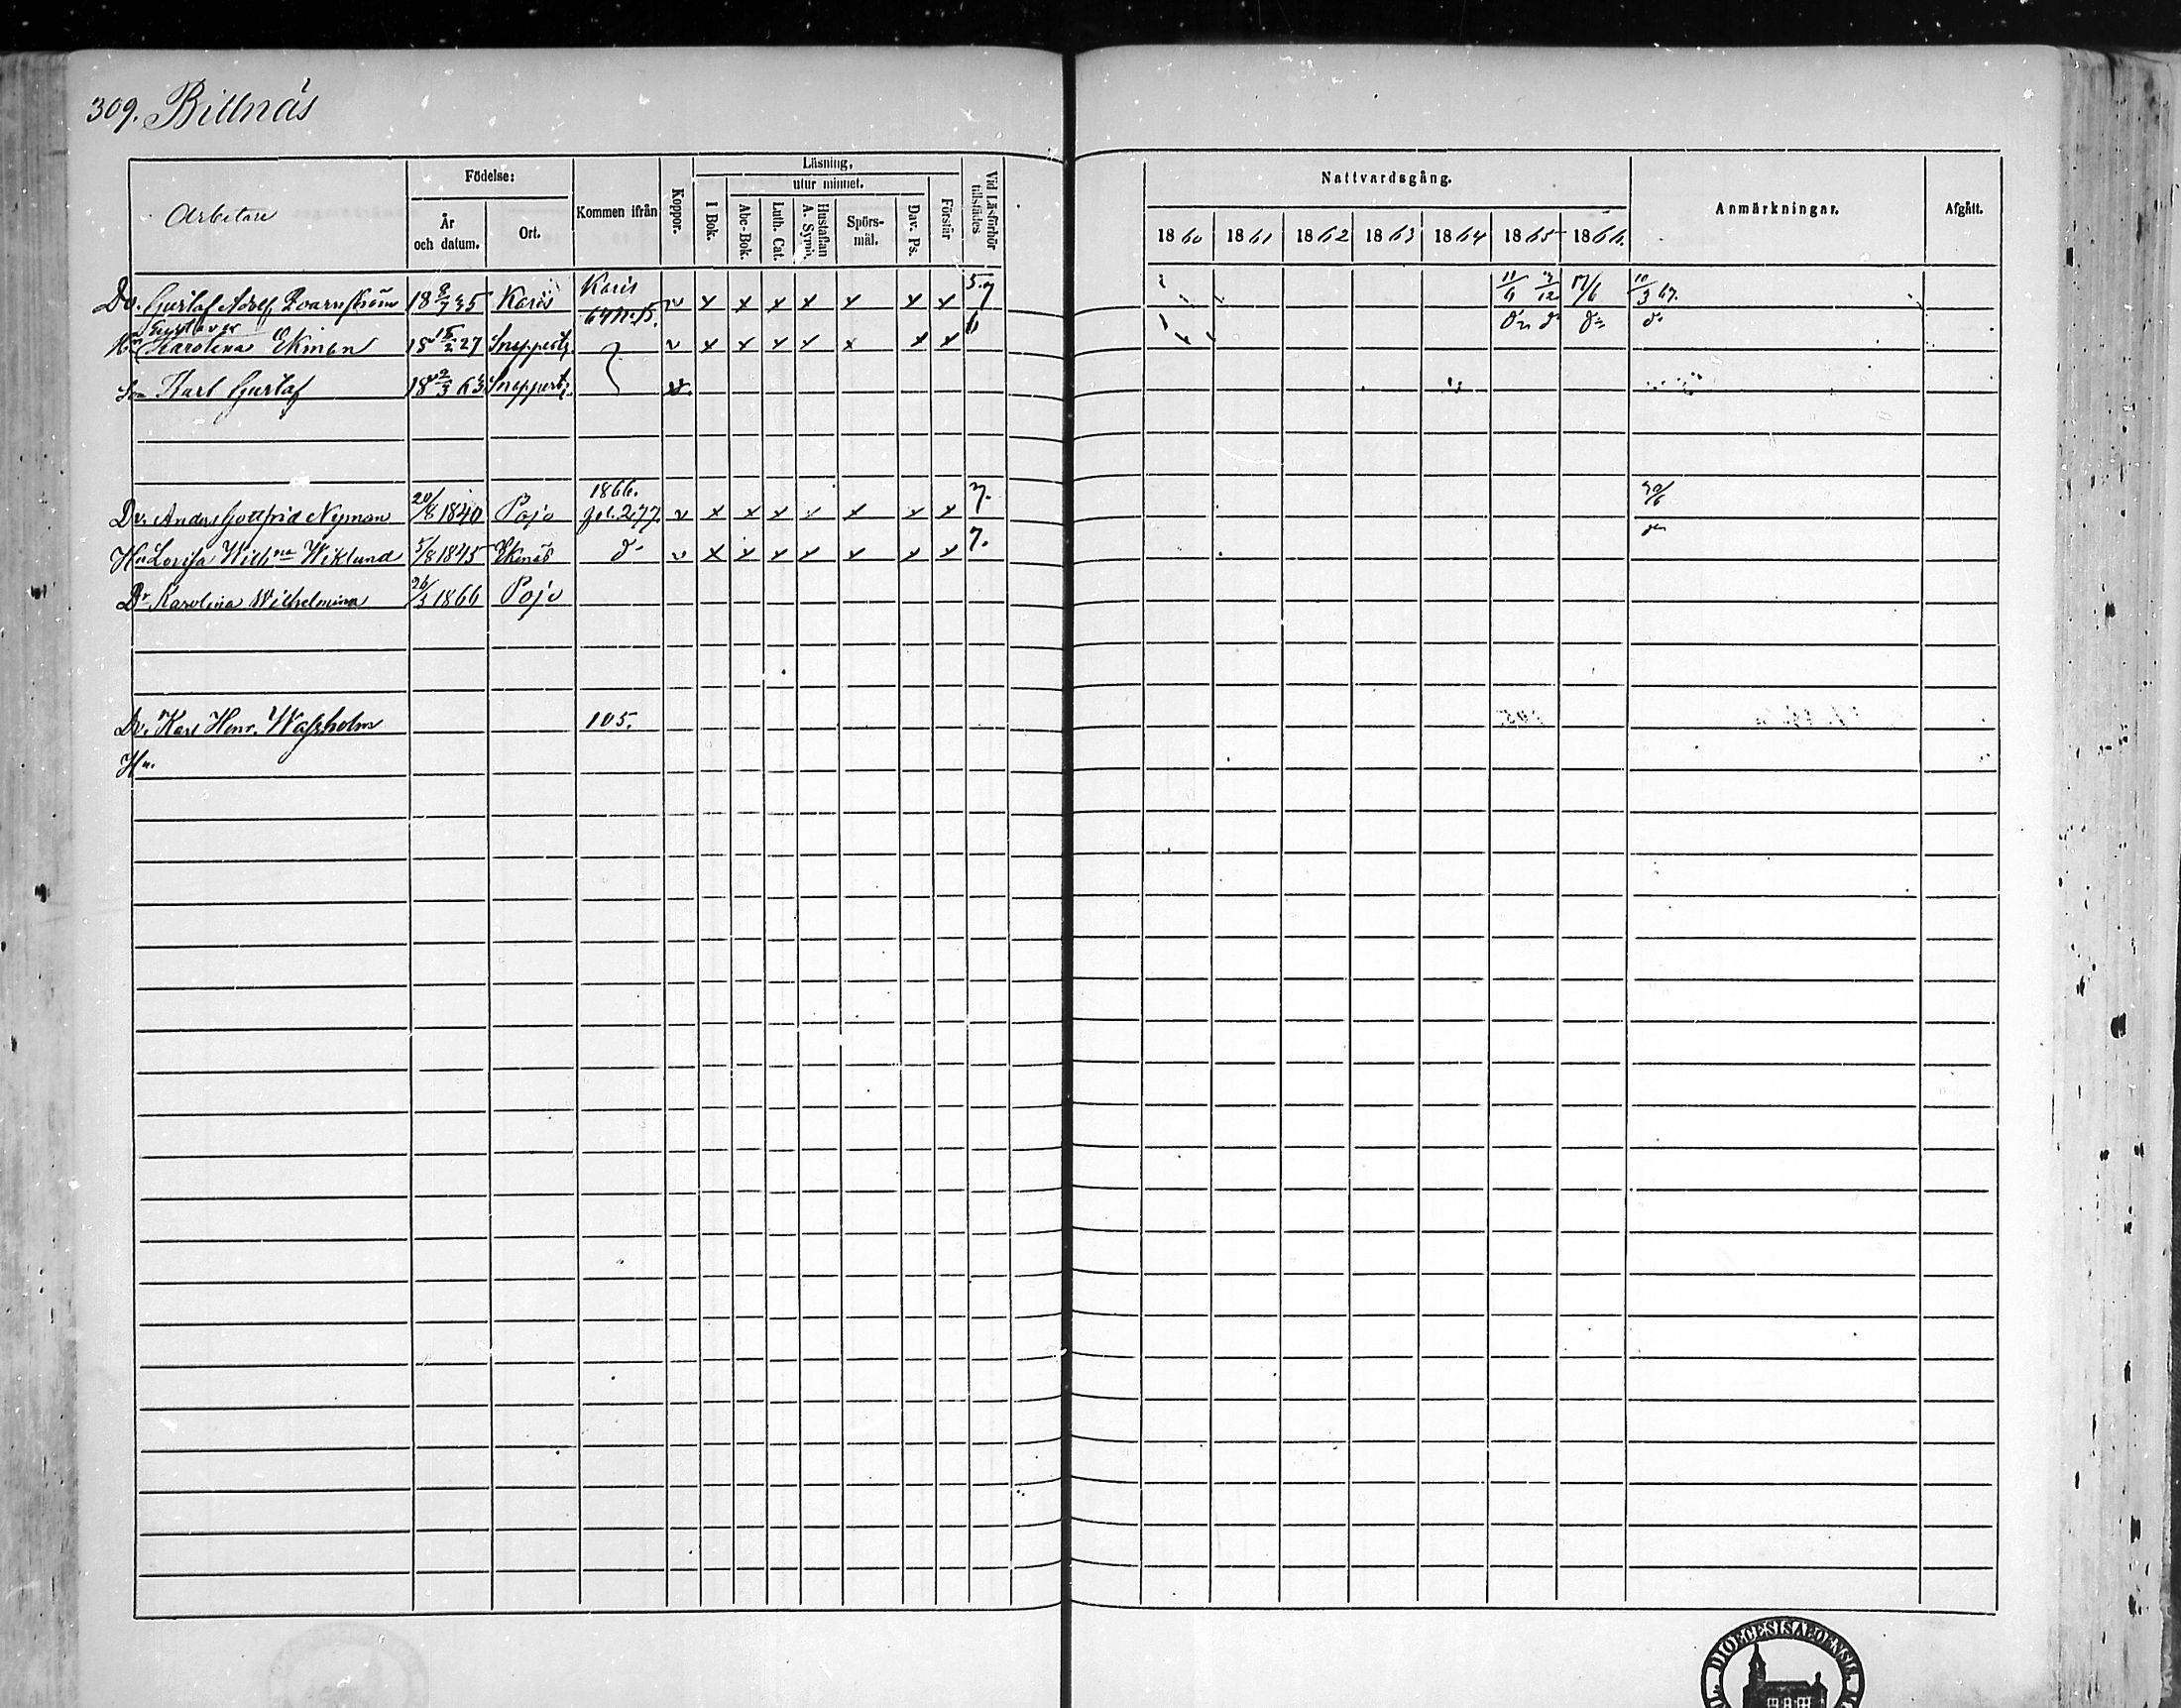 309. Billnäs
Arbetare
Födelse:
År och datum.
Ort.
Kommen ifrån
Koppor.
Läsning,
utur minnet.
I Bok.
Abc-Bok.
Luth. Cat.
Hustaflan A. Symb.
Spörsmål.
Dav. Ps.
Förstår
Vid Läsförhör tillstädes
Nattvardsgång.
1860 1861 1862 1863 1864 1865 1866.
Anmärkningar.
Afgått.
Dr. Gustaf Adolf 18 8/7 35 Karis Karis 64 n. 15. v x x x x x x x 5.7 11/6 3/12 17/6 10/3 67.
Gustava
Hu Karolina Ekman 18 15/2 27 Snappertz v x x x x x x x 6 do do do do
Son Karl Gustaf 18 2/3 63 Snappertz v.
Dr. Anders Gottfrid Nyman 20/8 1840 Pojo 1866. fol. 277. v x x x x x x x 7. 30/6
Hu Lovisa Wilhna Wiklund 5/8 1845 Ekenäs do v x x x x x x x 7. do
Dr Karolina Wilhelmina 26/3 1866 Pojo
Dr. Karl Henr. Waxholm 105.
Hu.
DIOECESIS ABOENSIS